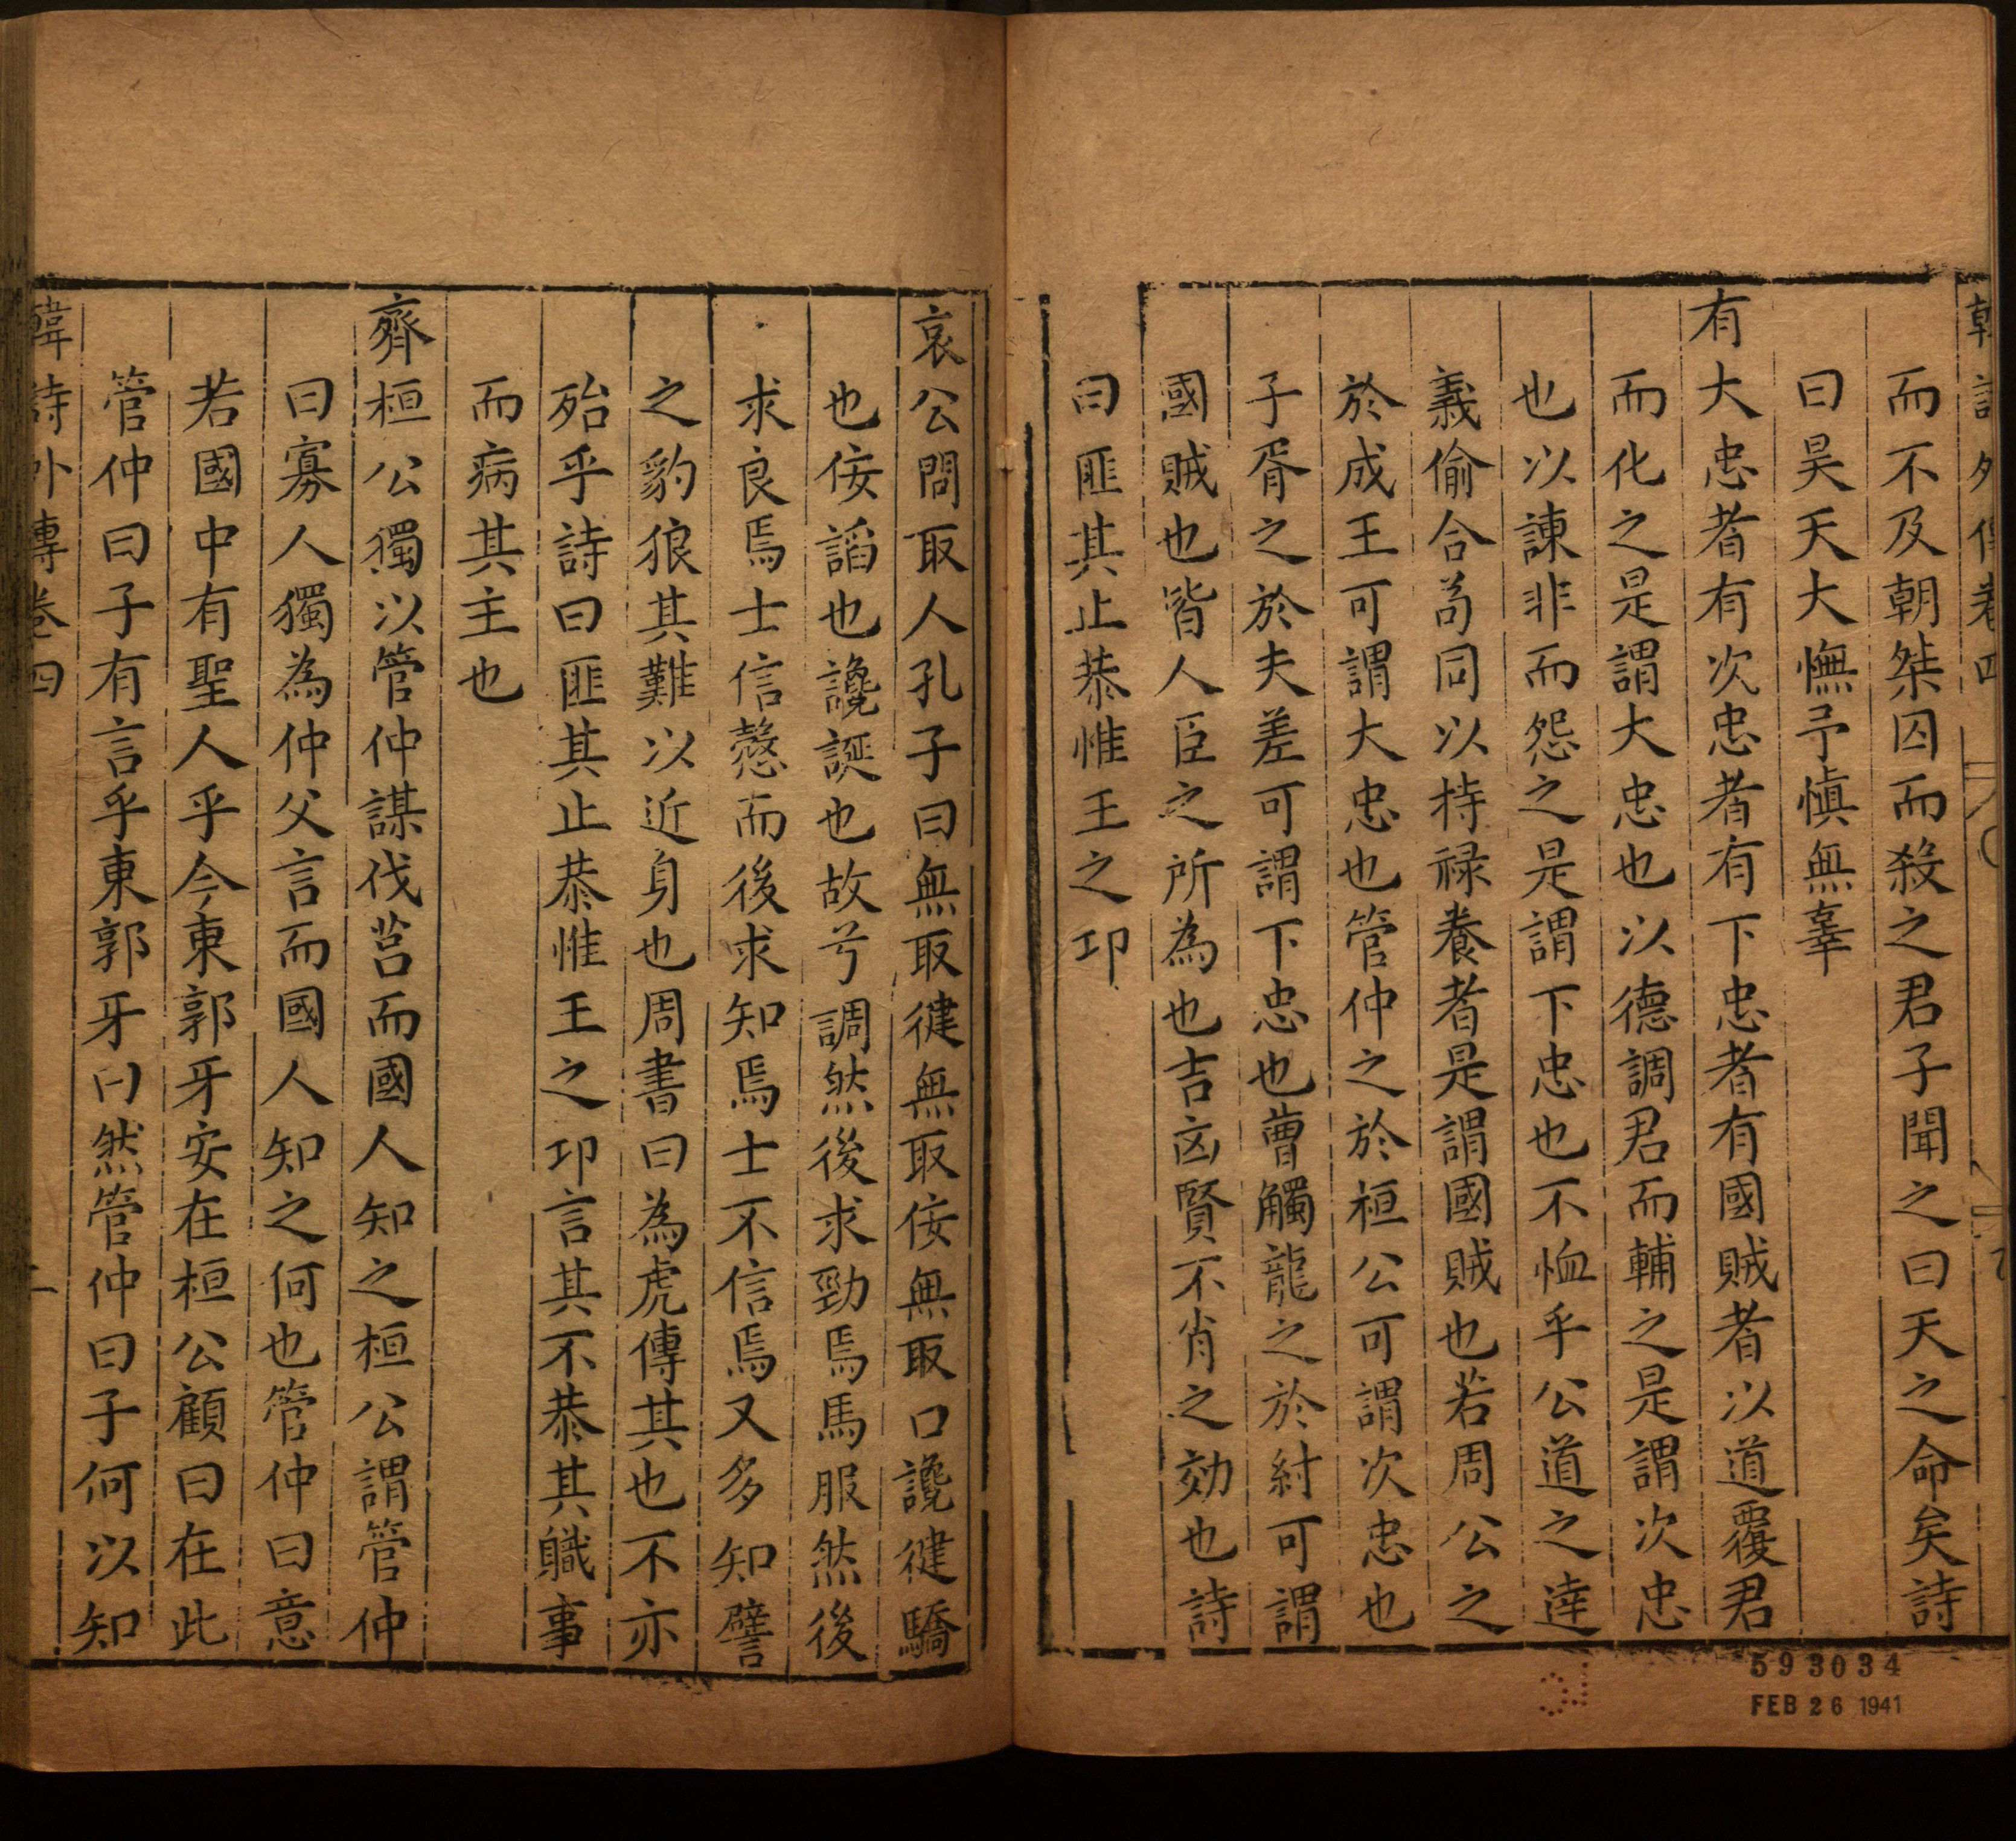 韓詩外傳卷四
而不及朝桀囚而殺之君子聞之曰天之命矣詩
曰昊天大憮予慎無辜
有大忠者有次忠者有下忠者有國賊者以道覆君
而化之是謂大忠也以德調君而輔之是謂次忠
也以諫非而怨之是謂下忠也不恤乎公道之逹
義偷合苟同以持禄養者是謂國賊也若周公之
於成王可謂大忠也管仲之於桓公可謂次忠也
子胥之於夫差可謂下忠也曹觸龍之於紂可謂
國賊也皆人臣之所為也吉凶賢不肖之効也詩
曰匪其止恭惟王之邛
哀公問取人孔子曰無取健無取佞無取口讒健驕
也佞謟也讒誕也故弓調然後求勁焉馬服然後
求良焉士信慤而後求知焉士不信焉又多知譬
之豹狼其難以近身也周書曰為虎傅其也不亦
殆乎詩曰匪其止恭惟王之邛言其不恭其軄事
而病其主也
齊桓公獨以管仲謀伐莒而國人知之桓公謂管仲
曰寡人獨為仲父言而國人知之何也管仲曰意
若國中有聖人乎今東郭牙安在桓公顧曰在此
管仲曰子有言乎東郭牙曰然管仲曰子何以知
韓詩外傳卷四
二
593034
FEB 26 1941